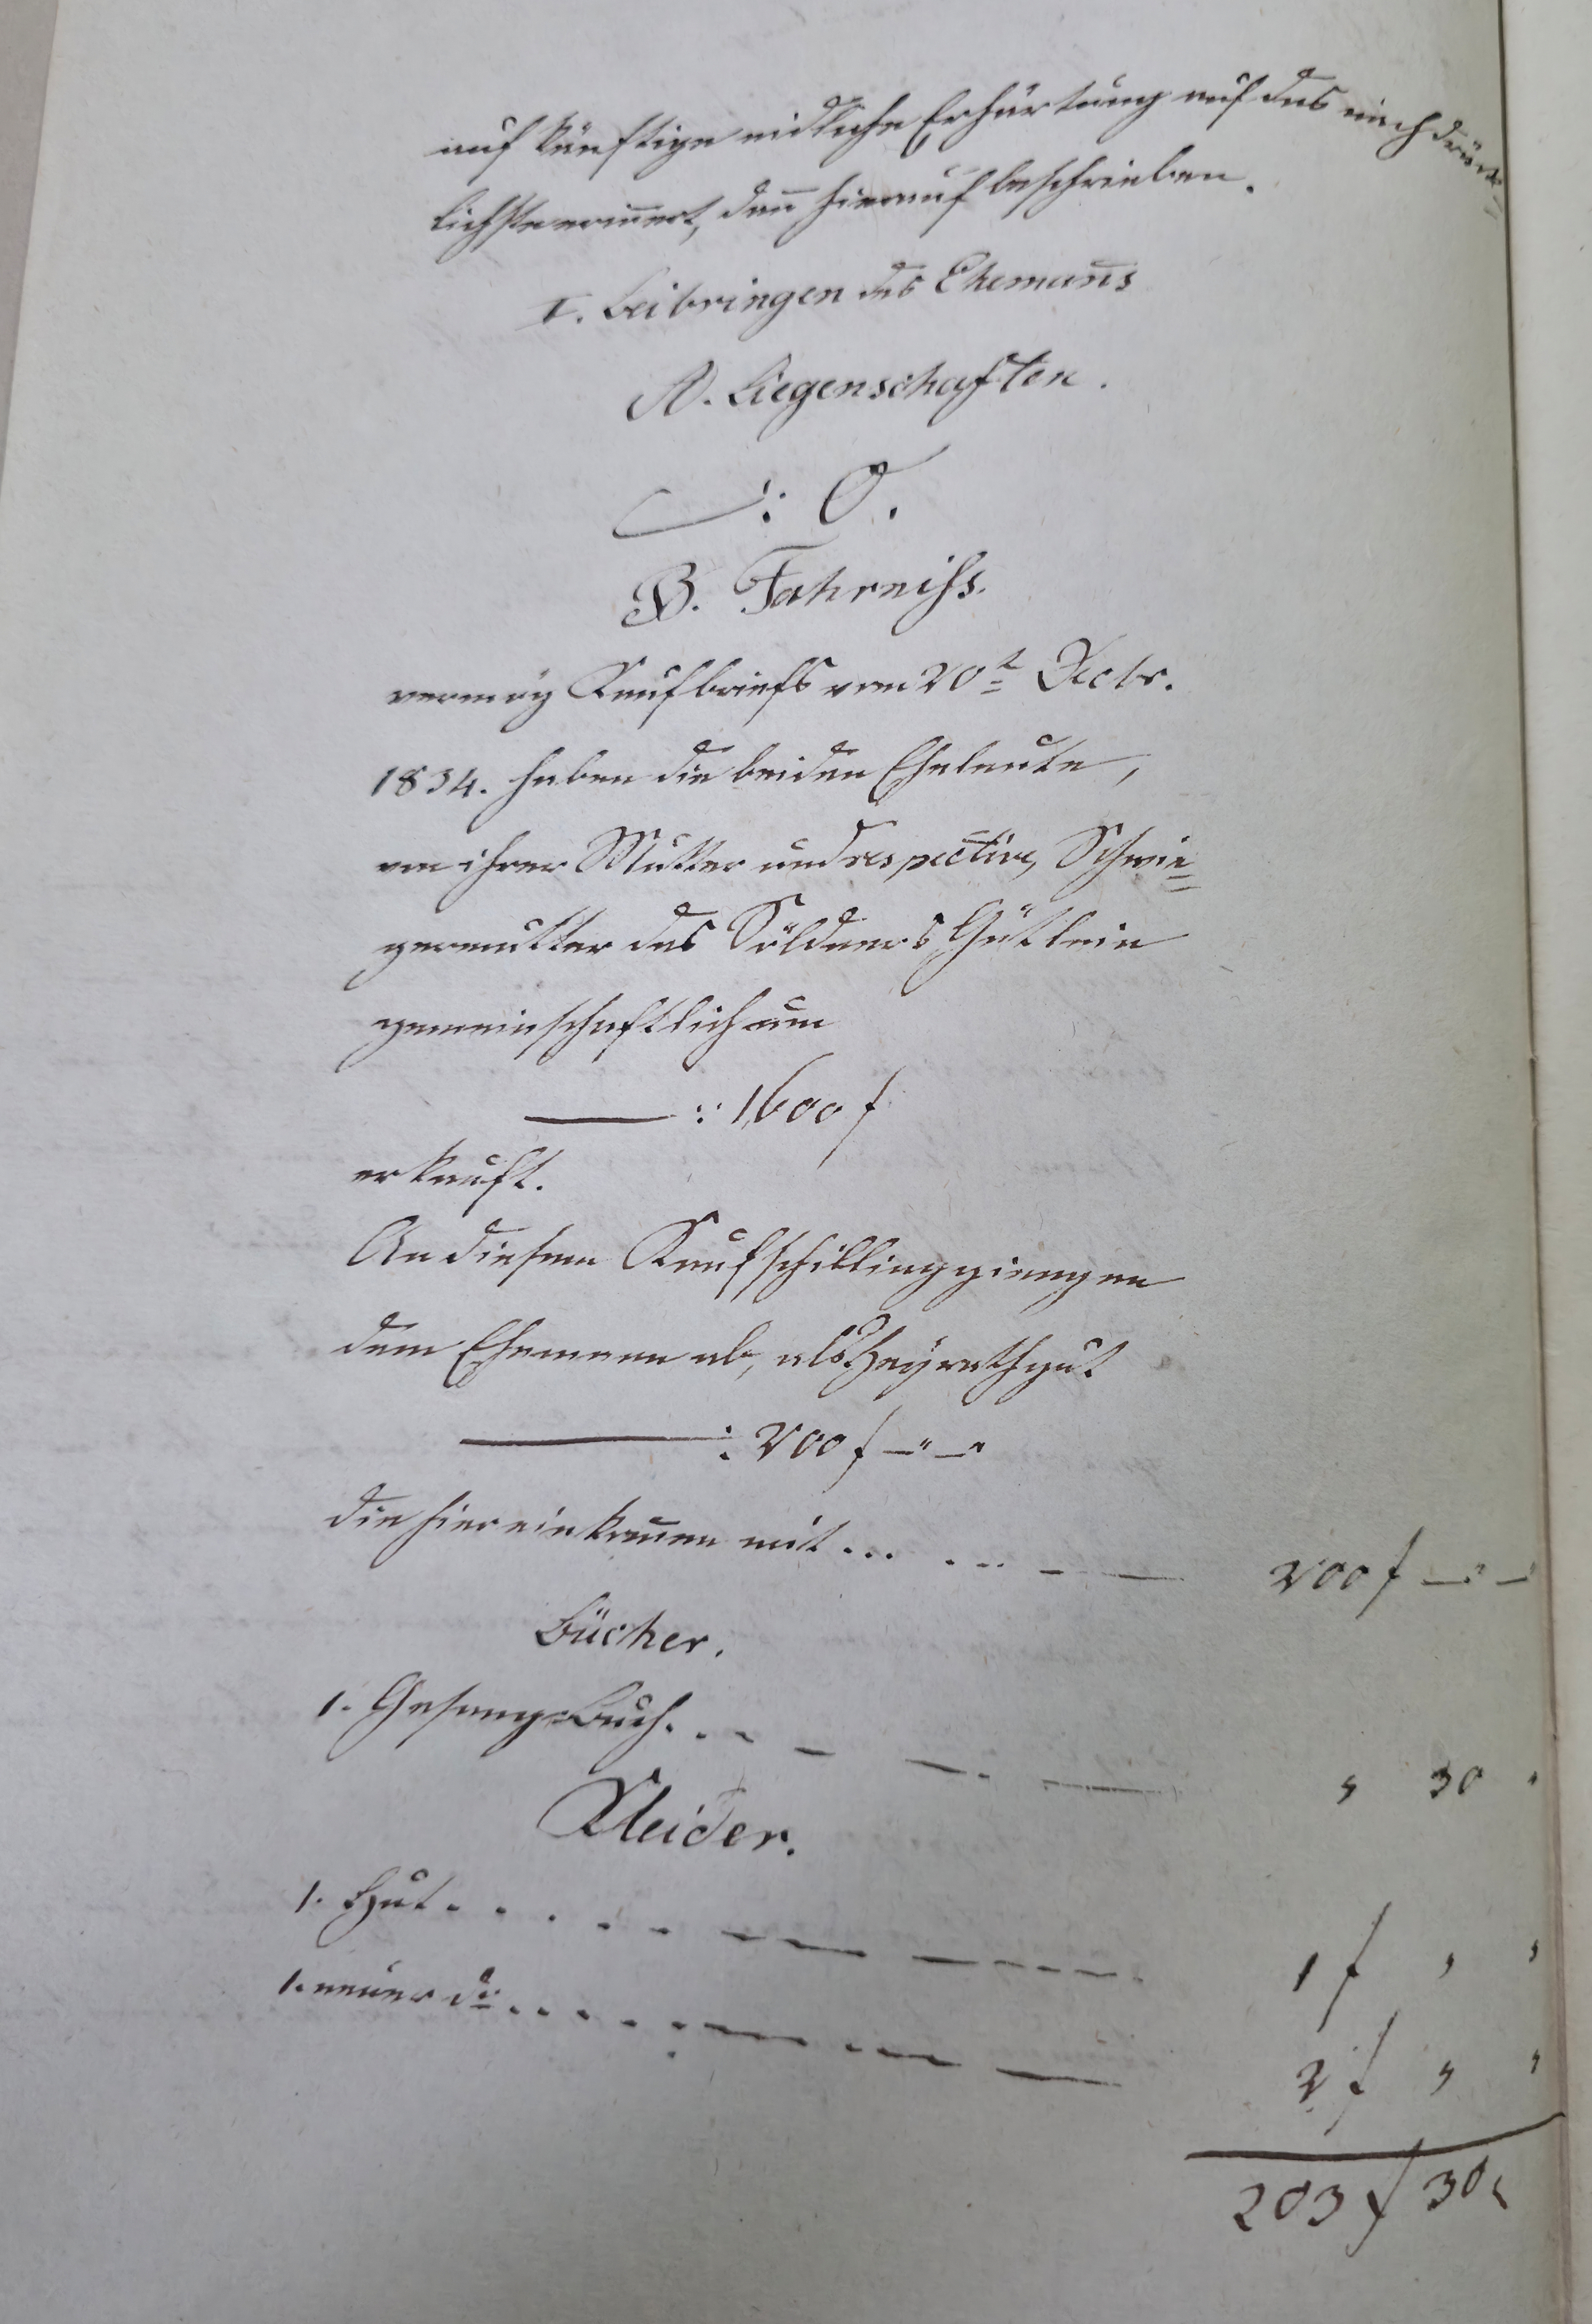 auf künftige eidliche Erhärtung auf das nachdrück=
lichste erin̄ert, dan̄ hierauf beschrieben.
I. Beibringen des Eheman̄s
A. Liegenschaften.
: 0.
B. Fahreniss.
vermög Kaufbriefs vom 20t Decbr.
1834. haben die beiden Eheleute,
von ihrer Mutter und respective, Schwie=
germutter das Söldners Gütlein
gemeinschaftlich um
—— : 1600 f
erkauft.
An diesem Kaufschilling giengen
dem Ehemann ab, als Heyrathgut
—— : 200 f —"—"
die hier einkom̄en mit ... ... — — 200 f —"—
Bücher.
1. Gesang=Buch. . . — — — — " 30 "
Kleider.
1. Hut . . . . . — — — — 1 f " "
1. neuer do. . . . . — — — — 2 f " "
203 f 30